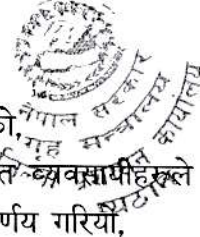 नेपाल सरकार
गृह मन्त्रालय
कार्यालय
को,
त व्यवसायीहरुले
र्णय गरियो,